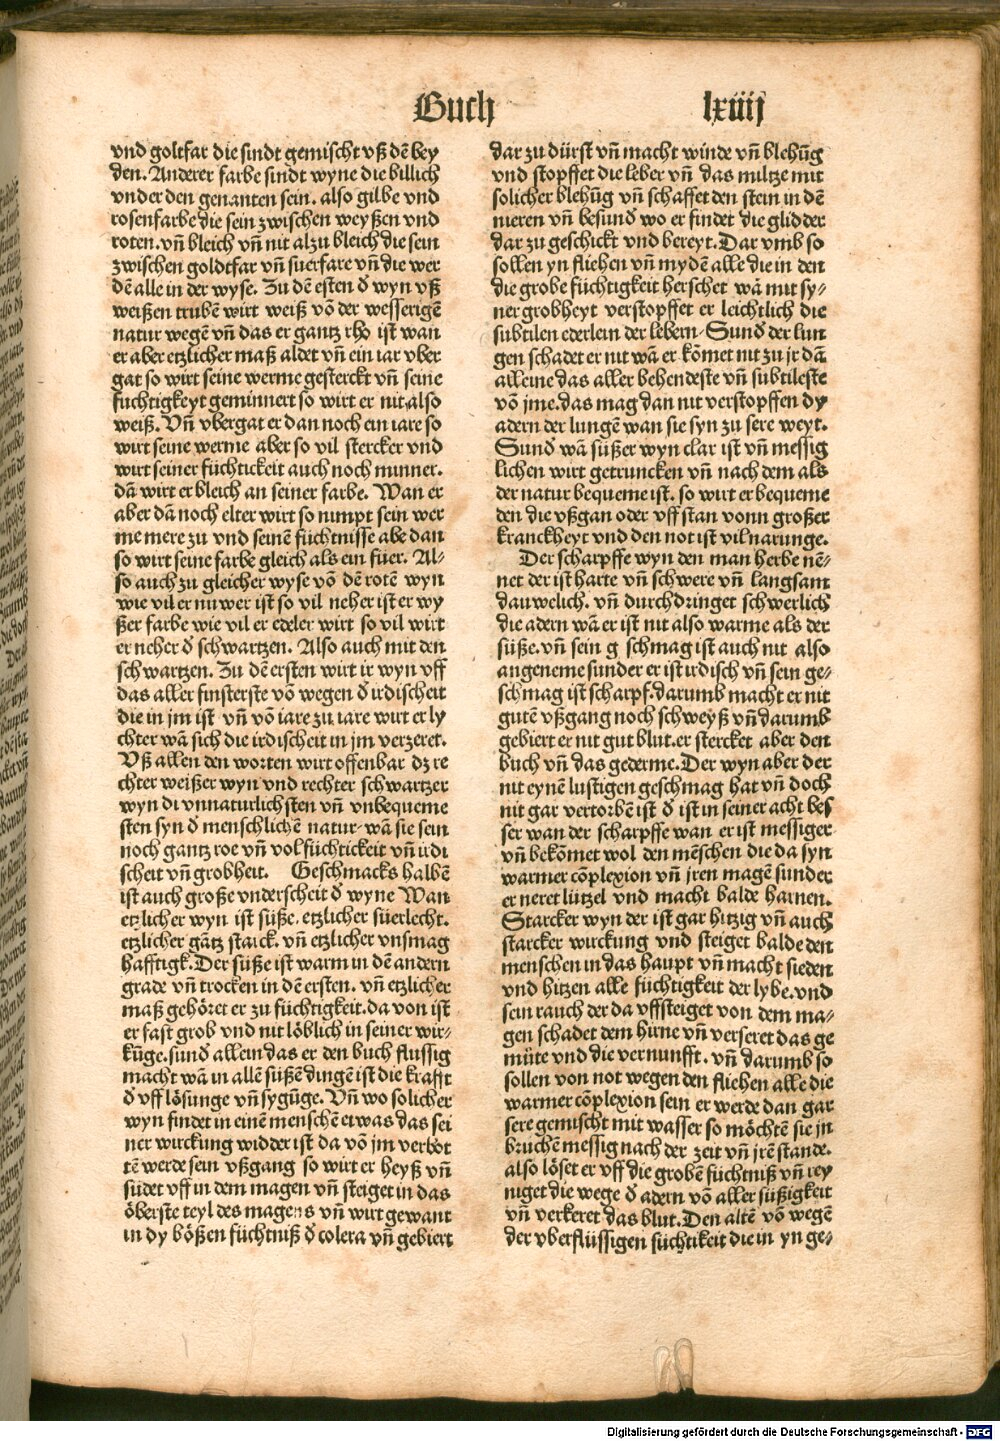 Buch lxiiij
vnd goltfar die sindt gemischt vß dē bey
den. Anderer farbe sindt wyne die billich
vnder den genanten sein. also gilbe vnd
rosenfarbe die sein zwischen weyßen vnd
roten. vñ bleich vñ nit alzu bleich die sein
zwischen goldtfar vñ fuerfare vñ die wer
dē alle in der wyse. Zu dē esten d̄ wyn vß
weißen trubē wirt weiß vō der wesserigē
natur wegē vñ das er gantz rho ist wan
er aber etzlicher maß aldet vñ ein iar vber
gat so wirt seine werme gesterckt vñ seine
fuchtigkeyt geminnert so wirt er nit also
weiß. Vñ vbergat er dan noch ein iare so
wirt seine werme aber so vil stercker vnd
wirt seiner füchtickeit auch noch minner.
dā wirt er bleich an seiner farbe. Wan er
aber dā noch elter wirt so nimpt sein wer
me mere zu vnd seinē füchtnisse abe dan
so wirt seine farbe gleich als ein füer. Al⸗
so auch zu gleicher wyse vō dē rotē wyn
wie vil er nuwer ist so vil neher ist er wy
ßer farbe wie vil er edeler wirt so vil wirt
er neher d̄ schwartzen. Also auch mit den
schwartzen. Zu dē ersten wirt ir wyn vff
das aller finsterste vō wegen d̄ irdischeit
die in jm ist vñ vō iare zu iare wirt er ly
chter wā sich die irdischeit in jm verzeret.
Vß allen den worten wirt offenbar dz re
chter weißer wyn vnd rechter schwartzer
wyn di vnnaturlichsten vñ vnbequeme
sten syn d̄ menschlichē natur⸗ wā sie sein
noch gantz roe vñ vol füchtickeit vñ irdi
scheit vñ grobheit. Geschmacks halbē
ist auch große vnderscheit d̄ wyne Wan
etzlicher wyn ist süße. etzlicher süerlecht.
etzlicher gātz starck. vñ etzlicher vnsmag
hafftigk. Der süße ist warm in dē andern
grade vñ trocken in dē ersten. vñ etzlicher
maß gehöret er zu füchtigkeit. da von ist
er fast grob vnd nit löblich in seiner wir⸗
kūge. sund̄ allein das er den buch flussig
macht wā in allē süßē dingē ist die krafft
d̄ vff lösunge vñ sygūge. Vñ wo solicher
wyn findet in einē menschē etwas das sei
ner wirckung widder ist da vō jm verbot
tē werde sein vßgang so wirt er heyß vñ
südet vff in dem magen vñ steiget in das
öberste teyl des magens vñ wirt gewant
in dy bößen füchtniß d̄ colera vñ gebiert
dar zu dürst vñ macht winde vñ blehūg
vnd stopffet die leber vñ das miltze mit
solicher blehūg vñ schaffet den stein in dē
nieren vñ besund̄ wo er findet die glidder
dar zu geschickt vnd bereyt. Dar vmb so
sollen yn fliehen vñ mydē alle die in den
die grobe füchtigkeit herschet wā mit sy⸗
ner grobheyt verstopffet er leichtlich die
subtilen ederlein der lebern⸗ Sund̄ der lun
gen schadet er nit wā er kōmet nit zu jr dā
alleine das aller behendeste vñ subtileste
vō jme. das mag dan nit verstopffen dy
adern der lungē wan sie syn zu sere weyt.
Sund̄ wā süßer wyn clar ist vñ messig
lichen wirt getruncken vñ nach dem als
der natur bequeme ist. so wirt er bequeme
den die vßgan oder vff stan vonn großer
kranckheyt vnd den not ist vil narunge.
Der scharpffe wyn den man herbe nē⸗
net der ist harte vñ schwere vñ langsam
dauwelich. vñ durchdringet schwerlich
die adern wā er ist nit also warme als der
süße. vñ sein g schmag ist auch nit also
angeneme sunder er ist irdisch vñ sein ge⸗
schmag ist scharpf. darumb macht er nit
gutē vßgang noch schweyß vñ darumb
gebiert er nit gut blut. er stercket aber den
buch vñ das gederme. Der wyn aber der
nit eynē lustigen geschmag hat vñ doch
nit gar vertorbē ist d̄ ist in seiner acht bes
ser wan der scharpffe wan er ist messiger
vñ bekōmet wol den mēschen die da syn
warmer cōplexion vñ jren magē sunder
er neret lützel vnd macht balde harnen.
Starcker wyn der ist gar hitzig vñ auch
starcker wirckung vnd steiget balde den
menschen in das haupt vñ macht sieden
vnd hitzen alle füchtigkeit der lybe. vnd
sein rauch der da vffsteiget von dem ma⸗
gen schadet dem hirne vñ verseret das ge
müte vnd die vernunfft. vñ darumb so
sollen von not wegen den fliehen alle die
warmer cōplexion sein er werde dan gar
sere gemischt mit wasser so möchtē sie jn
bruchē messig nach der zeit vñ jrē stande.
also löset er vff die grobē füchtniß vñ rey
niget die wege d̄ adern vō aller süßigkeit
vñ verkeret das blut. Den altē vō wegē
der vberflüssigen füchtikeit die in yn ge⸗
Digitalisierung gefördert durch die Deutsche Forschungsgemeinschaft - DFG